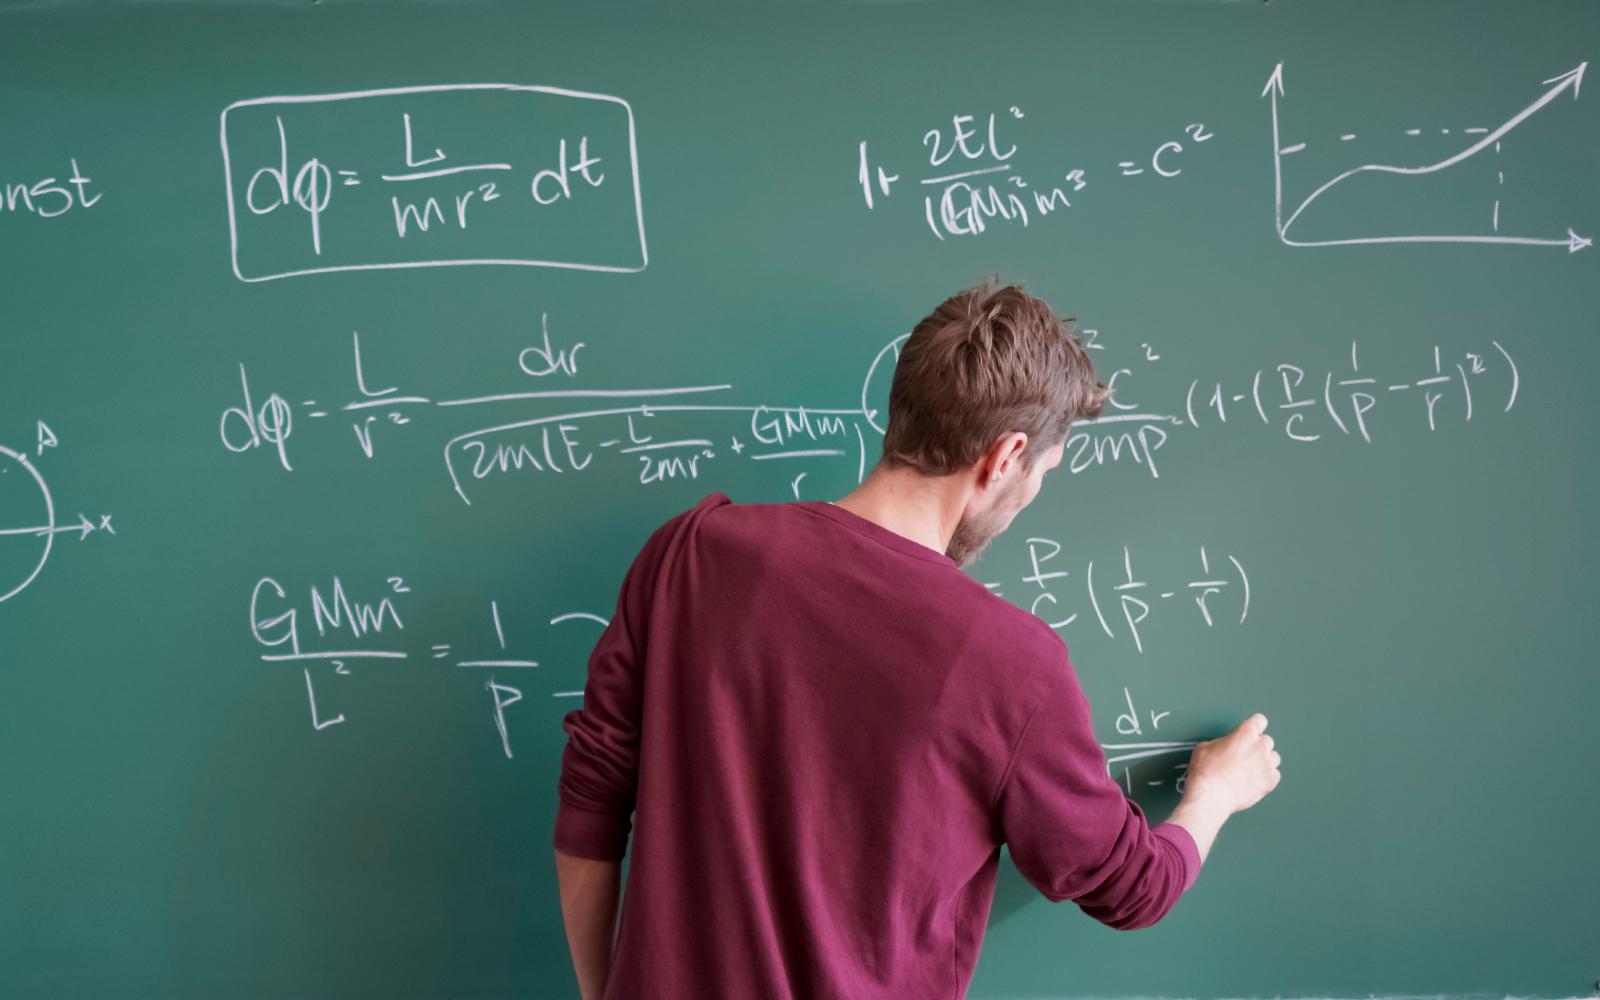 onst
dφ = L/mr² dt
1+ 2EL²/(GM)²m³ = C²
A
x
dφ = L/r² dr/√2m(E - L²/2mr² + GMm/r)
² C²/2mp² (1-(P/C(1/P - 1/r)²)
GMm²/L² = 1/P
= P/C (1/P - 1/r)
dr/√1-